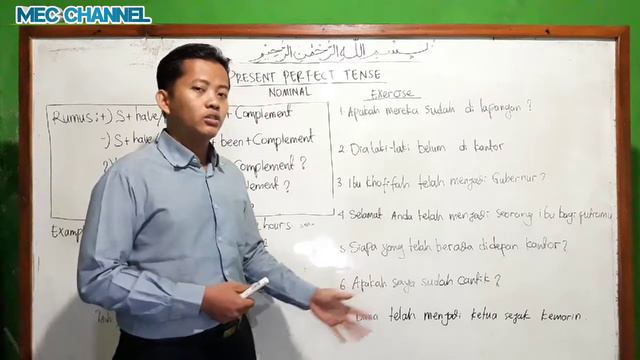 MEC CHANNEL
بسم الله الرحمن الرحيم
PRESENT PERFECT TENSE
NOMINAL
Exercise
Rumus:+) S+ have/ + Complement
-) S+ have been + Complement
?) Complement ?
plement ?
Examp hours
1 Apakah mereka sudah di lapangan ?
2. Dia laki-laki belum di kantor
3 Ibu Khofifah telah menjadi Gubernur ?
4 Selamat Anda telah menjadi seorang ibu bagi putramu
5 Siapa yang telah berada didepan kantor ?
6. Apakah saya sudah cantik ?
telah menjadi ketua sejak kemarin.